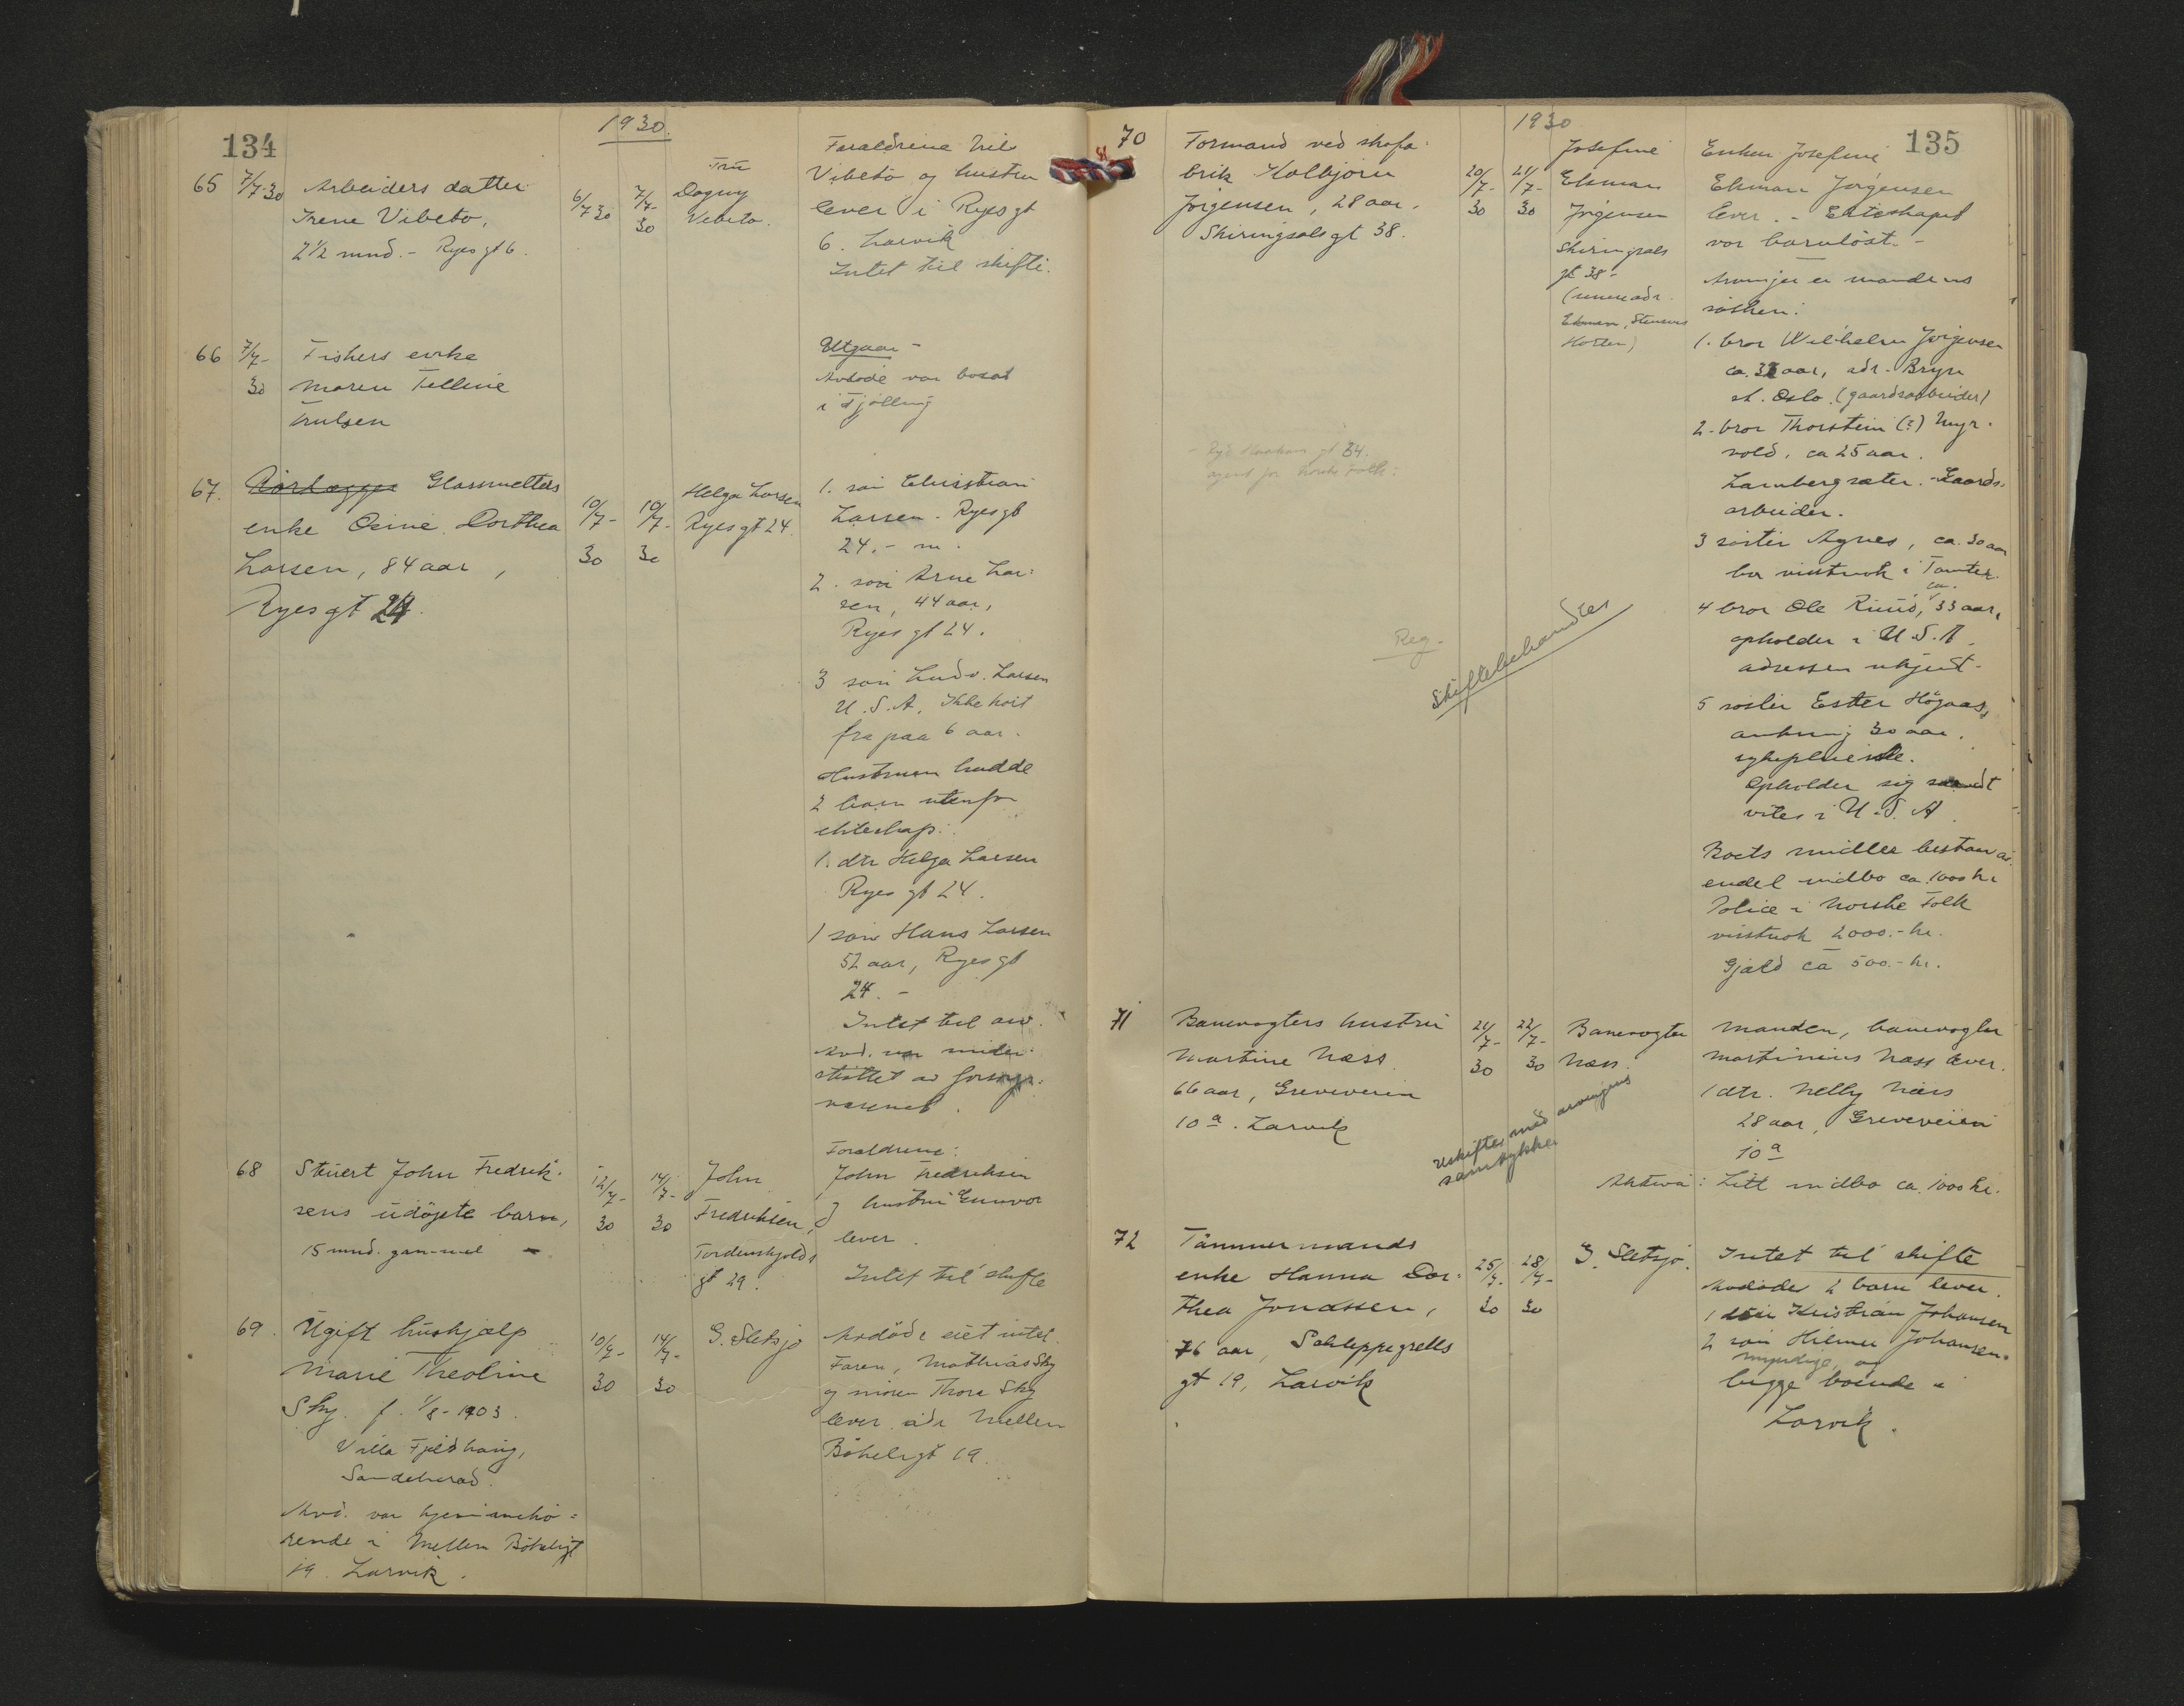 134
1930.
65 7/7-30 Arbeiders datter
Irene Vibeto,
2 1/2 mnd. - Ryesgt 6.
6/7 30
7/7-30
Fru
Dagny
Vibeto.
Foraldrene Nils
Vibeto og hustru
lever i Ryesgt
6. Larvik
Intet til skifte.
66 7/7-30 Fiskers enke
Maren Telline
Trulsen
Utgaar -
Avdöde var bosat
i Tjölling
67. Glasmesters
enke Osine Dorthea
Larsen, 84 aar,
Ryesgt 24.
10/7-30
10/7-30
Helga Larsen
Ryesgt 24.
1. sön Christian
Larsen. Ryesgt
24. - m.
2. sön Arne Lar-
sen, 44 aar,
Ryesgt 24.
3 sön Ludv. Larsen
U.S.A. Ikke hört
fra paa 6 aar.
Hustruen hadde
2 barn utenfor
ekteskap:
1. dtr Helga Larsen
Ryesgt 24.
1 sön Hans Larsen
52 aar, Ryesgt
24. -
Intet til arv.
Avd. var under-
stöttet av forsorgs-
vesenet.
68 Stuert John Fredrik-
sens udöpte barn,
15 mnd. gammel
12/7-30
14/7-30
John
Fredriksen,
Tordenskjolds
gt 29.
Foraldrene:
John Fredriksen
og hustru Gunvor
lever.
Intet til skifte
69. Ugift hushjælp
Marie Theoline
Sky. f. 1/8-1903.
Villa Fjeldhaug,
Sandeherad.
Avd. var hjemmehö-
rende i Mellem Bökeligt
19. Larvik.
10/7-30
14/7-30
G. Sletsjö
Avdöde eiet intet.
Faren, Mathias Sky
og moren Thora Sky
lever adr Mellem
Bökeligt 19.
135
1930
70 Formand ved skofa-
brik Holbjörn
Jörgensen, 28 aar.
Skiringsalsgt 38.
20/7-30
21/7-30
Josefine
Ekman
Jörgensen
Skiringsals
gt 38 -
Horten)
Enken Josefine
Ekman Jörgensen
lever. - Ekteskapet
var barnlöst. -
Arvinger er mandens
sösken:
1. bror Wilhelm Jörgensen
aar, adr. Bryn
st. Oslo. (gaardsarbeider)
2. bror Thorstein (?) Myr-
vold, ca 25 aar.
Lambergsæter. Gaards-
arbeider.
3 söster Agnes, ca. 30 aar
bor visstnok i Tomter.
4 bror Ole Ruud, ca. 33 aar,
opholder i U.S.A.
adressen ukjent.
5 söster Ester Högaas,
omkring 30 aar.
sykepleierske.
Opholder sig saavidt
vites i U.S.A.
Boets midler bestaar av
endel indbo ca. 1000 kr
Police i Norske Folk
visstnok 2000.- kr.
Gjæld ca 500.- kr.
Haakons gt 34.
agent for Norske Folk:
Reg.
Skiftebehandles
71 Banevogters hustru
Martine Næss
66 aar, Greveveien
10 a. Larvik
21/7-30
22/7-30
Banevogter
Næss.
Uskiftet med arvingens
samtykke
Manden, banevogter
Martinius Næss lever.
1 dtr. Nelly Næss
28 aar, Greveveien
10 a
Aktiva: Litt indbo ca. 1000 kr.
72 Tömmermands
enke Hanna Dor-
thea Jonassen,
76 aar, Schleppegrells
gt 19, Larvik
25/7-30
28/7-30
G. Sletsjö.
Intet til skifte
Avdöde 2 barn lever.
1 sön Kristian Johansen
2 sön Hilmer Johansen.
myndige, og
begge boende i
Larvik.